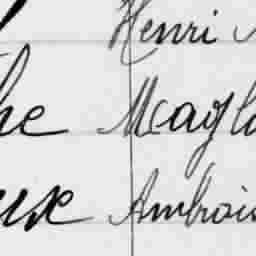 Henri
he Magl
ux Ambrois